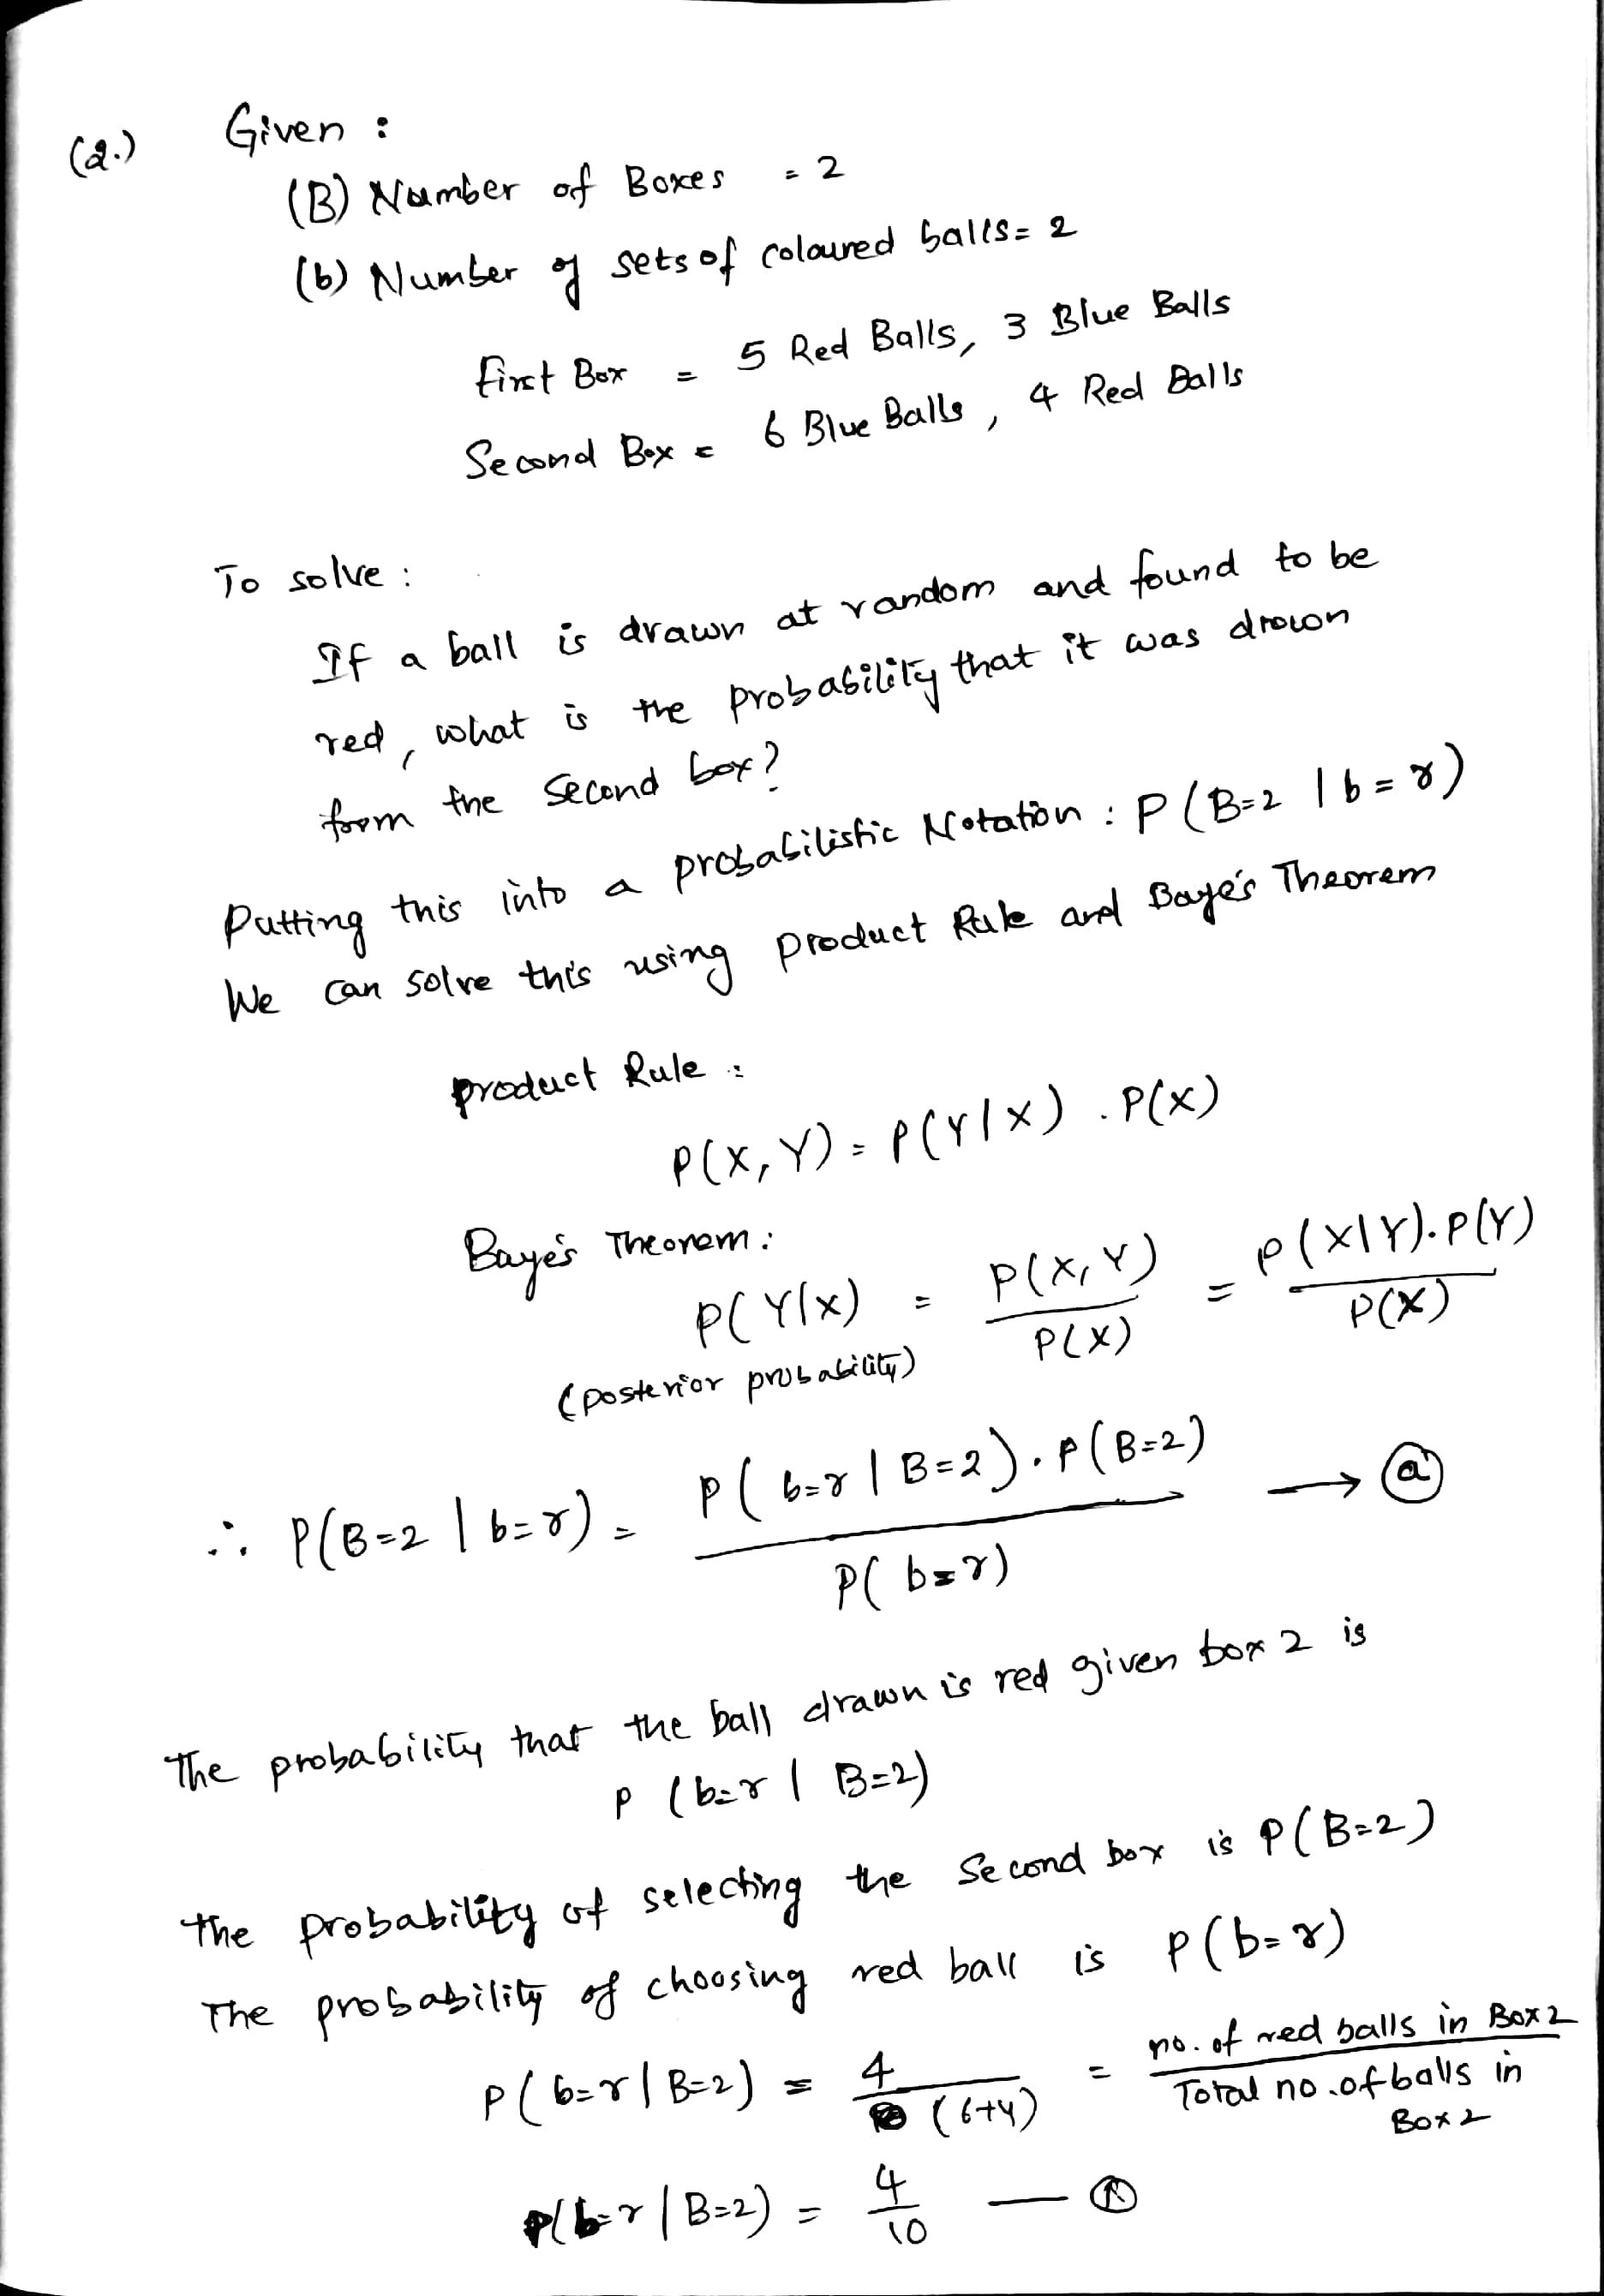 (2.) Given :
(B) Number of Boxes = 2
(b) Number of sets of coloured balls = 2
First Box = 5 Red Balls, 3 Blue Balls
Second Box = 6 Blue Balls, 4 Red Balls
To solve :
If a ball is drawn at random and found to be
red, what is the probability that it was drawn
from the second box?
Putting this into a probabilistic Notation : P(B=2 | b=r)
We can solve this using product Rule and Baye's Theorem
product Rule :
P(X,Y) = P(Y|X) . P(X)
Baye's Theorem :
P(Y|X) = P(X,Y) / P(X) = P(X|Y).P(Y) / P(X)
(posterior probability)
∴ P(B=2 | b=r) = P(b=r | B=2) . P(B=2) / P(b=r) → ⓐ
The probability that the ball drawn is red given box 2 is
P (b=r | B=2)
The probability of selecting the second box is P(B=2)
The probability of choosing red ball is P(b=r)
P(b=r | B=2) = 4 / (6+4) = no. of red balls in Box 2 / Total no. of balls in Box 2
P(b=r | B=2) = 4/10 —